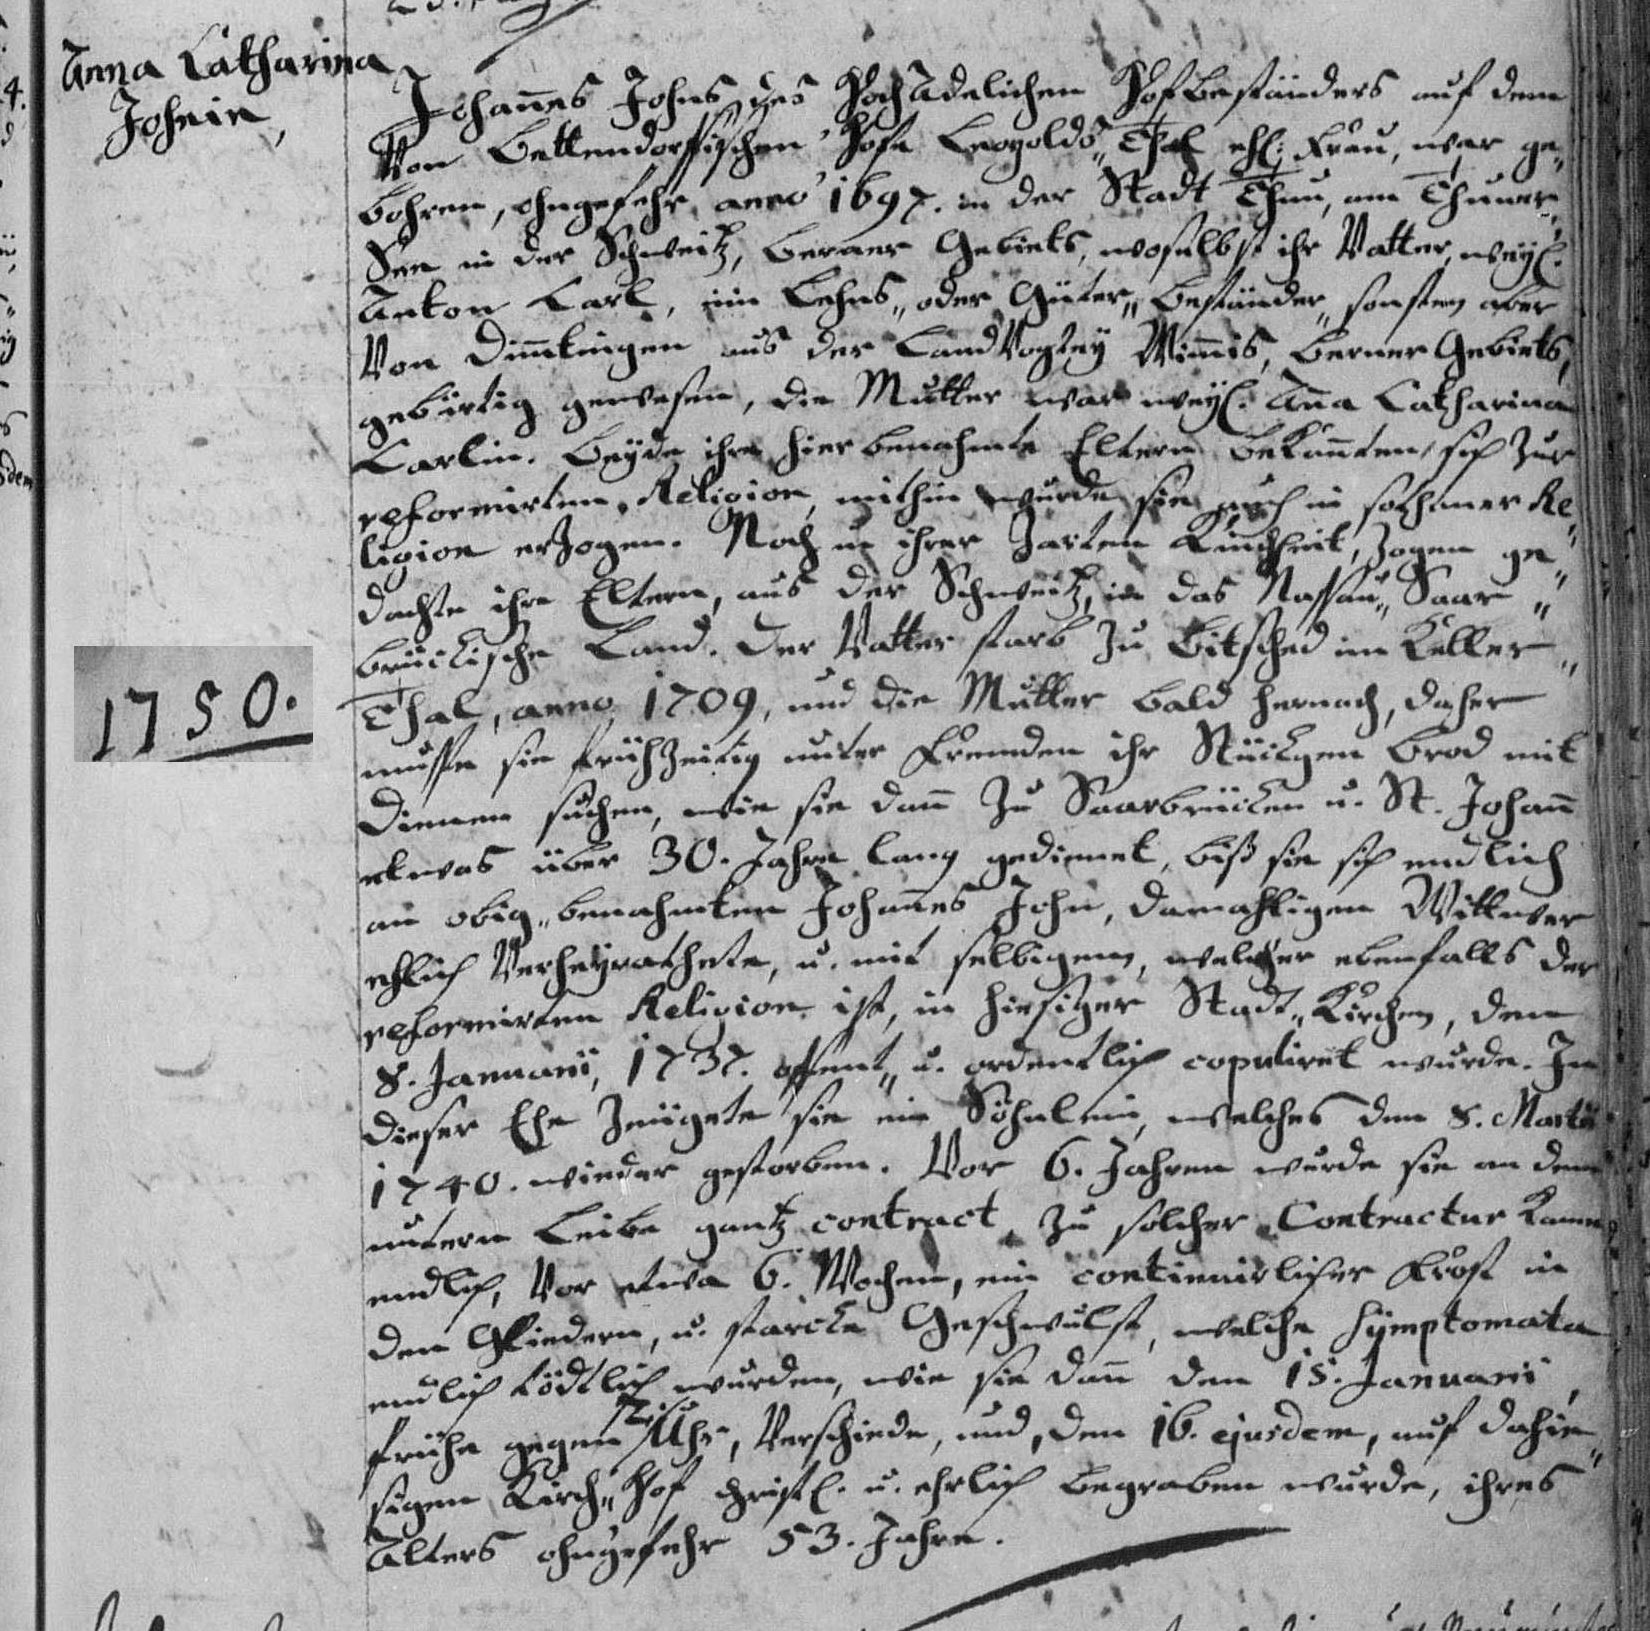 Anna Catharina
Johnin,
Johannes Johns des HochAdelichen Hofbeständers auf dem
Von Bettendorffischen Hofe Leopolds„ Thal ehl: Frau, war ge„
bohren, ohngefehr anno 1697. in der Stadt Thun, am Thuner„
See in der Schweitz, Berner Gebiets, woselbst ihr Vatter, weyl.
Anton Carl, ein Lehns„ oder Güter„ Beständer„ sonsten aber
Von Dimtingen aus der LandVogtey Wimmis, Berner Gebiets,
gebürtig gewesen, die Mutter war weyl. Anna Catharina
Carlin. Beyde ihre hier benahmte Eltern bekannten sich zur
reformirten Religion, mithin wurde sie auch in sothaner Re„
ligion erzogen. Noch in ihrer Zarten Kindheit, zogen ge„
dachte ihre Eltern, aus der Schweitz, in das Nassau„ Saar„
brückische Land. Der Vatter starb zu Bitsched im Keller„
Thal, anno 1709, und die Mutter bald hernach, daher
muste sie frühzeitig unter Fremden ihr Stückgen Brod mit
Dienen suchen, wie sie dann zu Saarbrücken u. St. Johann
etwas über 30. Jahre lang gedienet, biß sie sich endlich
an obig„ benahmten Johannes John, damahligen Wittwer
ehlich Verheyrathete, u. mit selbigem, welcher ebenfalls der
reformirten Religion ist, in hiesiger Stadt„ Kirchen, den
8. Januarii, 1737. offent„ u. ordentlich copuliret wurde. In
dieser Ehe zeugete sie ein Söhnlein, welches den 8. Martii
1740. wieder gestorben. Vor 6. Jahren wurde sie an dem
untern Leibe gantz contract, zu solcher Contractur kame
endlich, Vor etwa 6. Wochen, ein continuirlicher Frost in
den Gliedern, u. starcke Geschwulst, welche Symptomata
endlich tödtlich wurden, wie sie dann den 15. Januarii,
frühe gegen Uhr, Verschiede, und, den 16. ejusdem, auf dahie„
sigen Kirch„ Hof christl. u. ehrlich begraben wurde, ihres
Alters ohngefehr 53. Jahre.
1750.